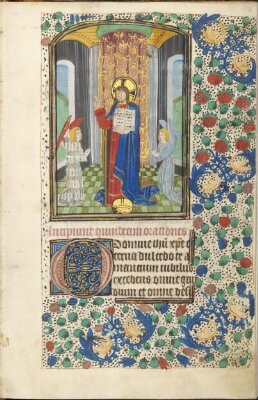 Incipiunt quindecim orationes
O Domine ihũ xpẽ e
terna dulcedo te a
mantium iubilus
excedens omne gau
dium et omne desi